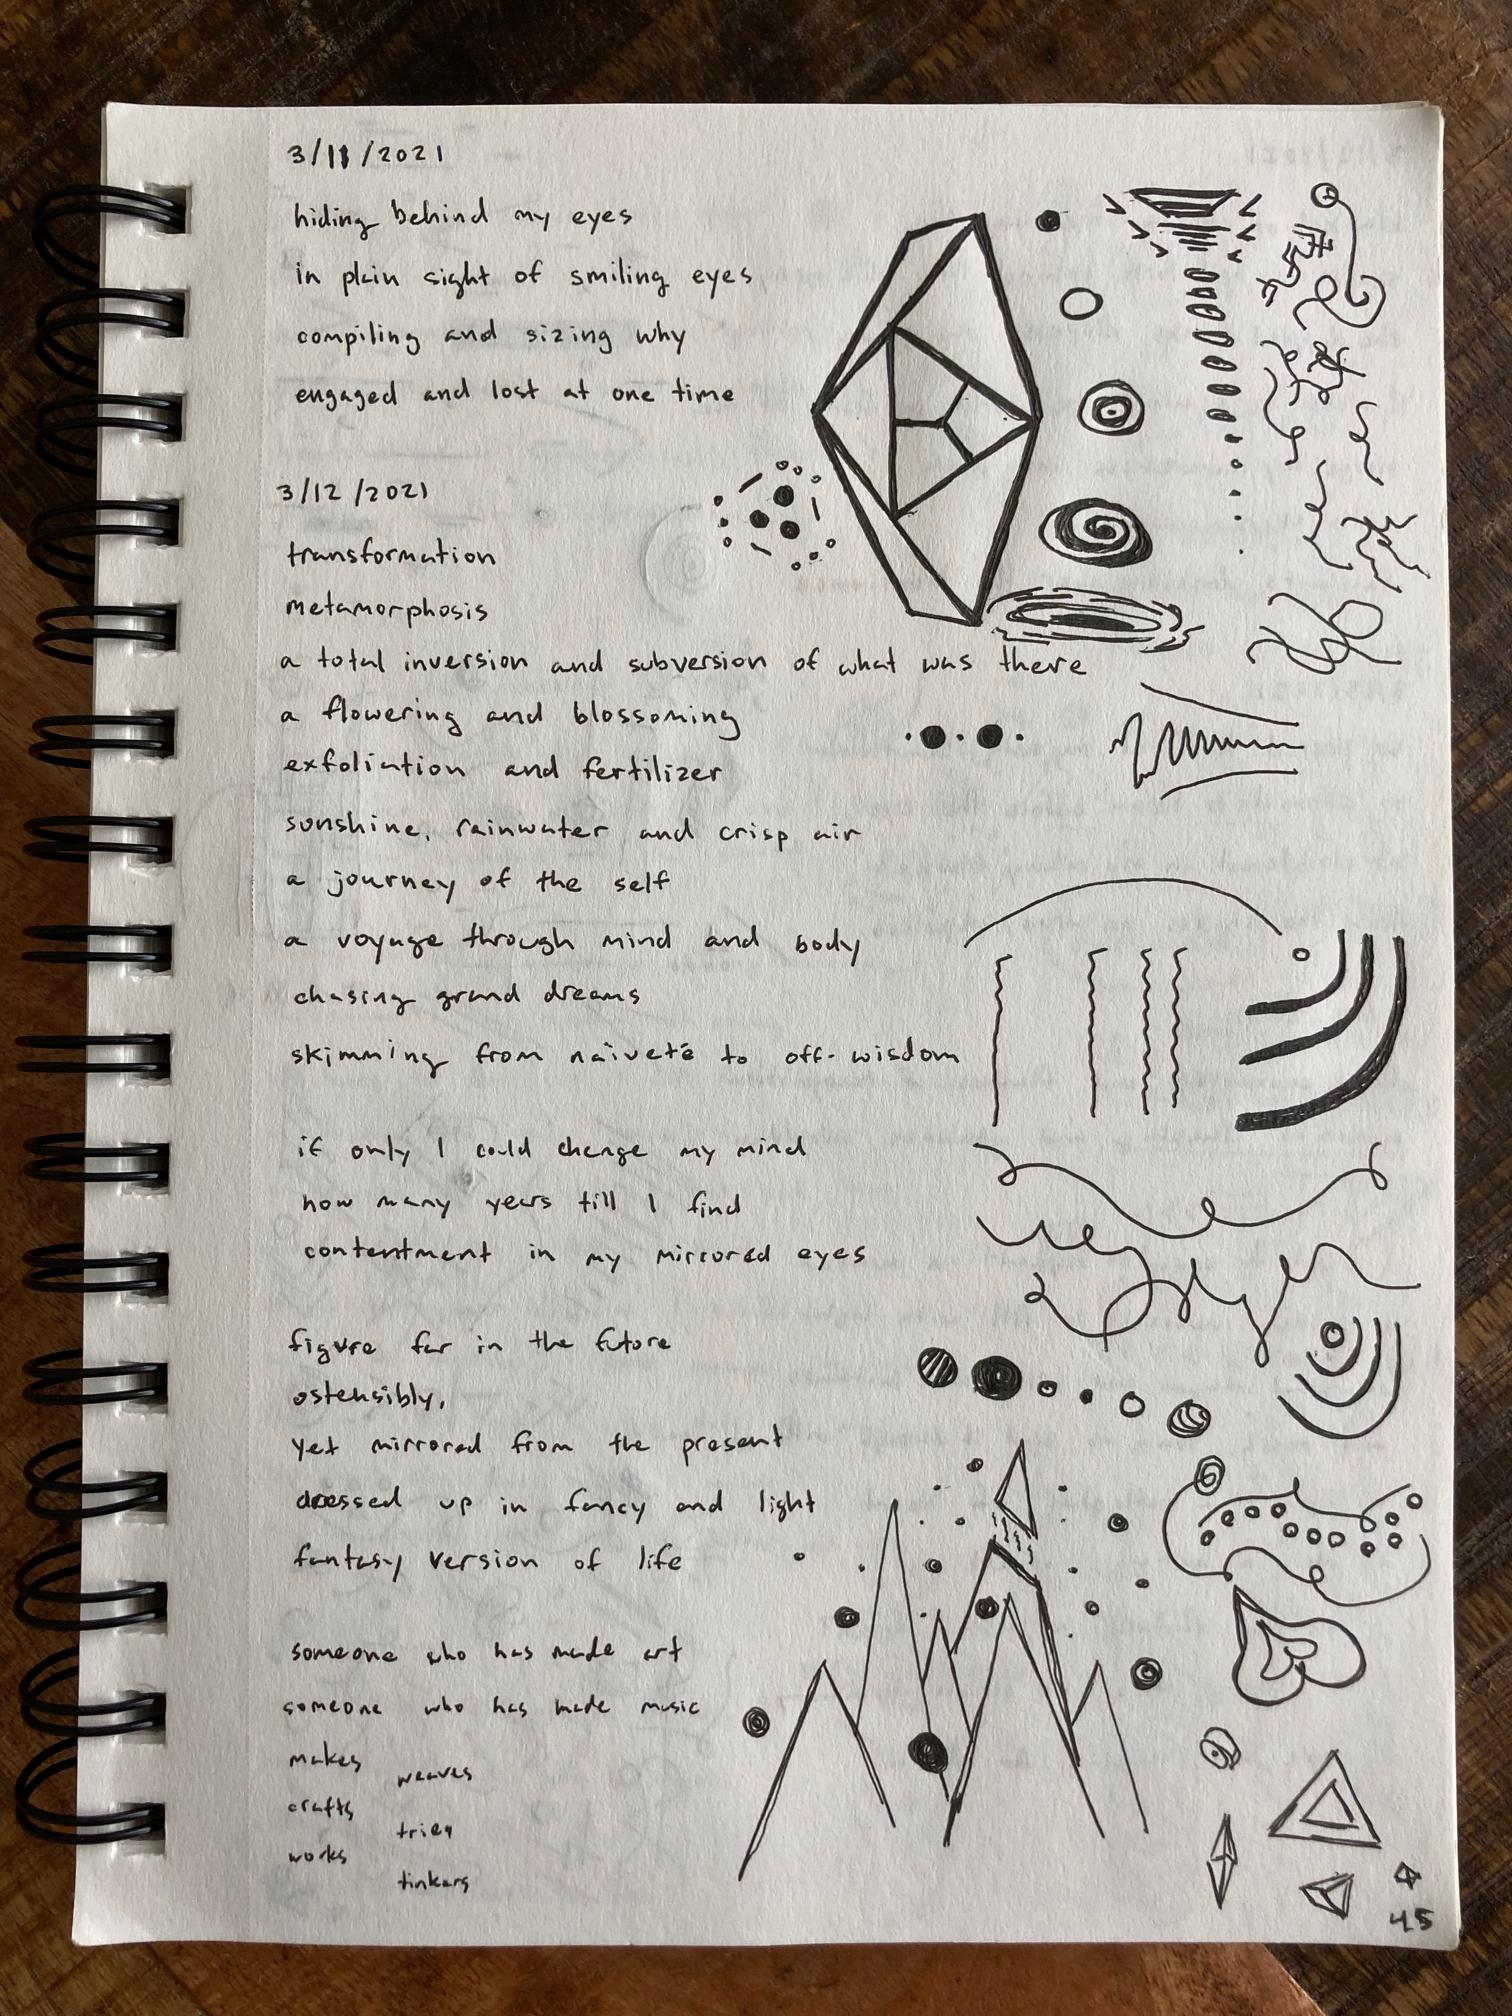 3/11/2021
hiding behind my eyes
in plain sight of smiling eyes
compiling and sizing why
engaged and lost at one time
3/12/2021
transformation
metamorphosis
a total inversion and subversion of what was there
a flowering and blossoming
exfoliation and fertilizer
sunshine, rainwater and crisp air
a journey of the self
a voyage through mind and body
chasing grand dreams
skimming from naïveté to off-wisdom
if only I could change my mind
how many years till I find
contentment in my mirrored eyes
figure far in the future
ostensibly,
yet mirrored from the present
dressed up in fancy and light
fantasy version of life
someone who has made art
someone who has made music
makes
weaves
crafts
tries
works
tinkers
45